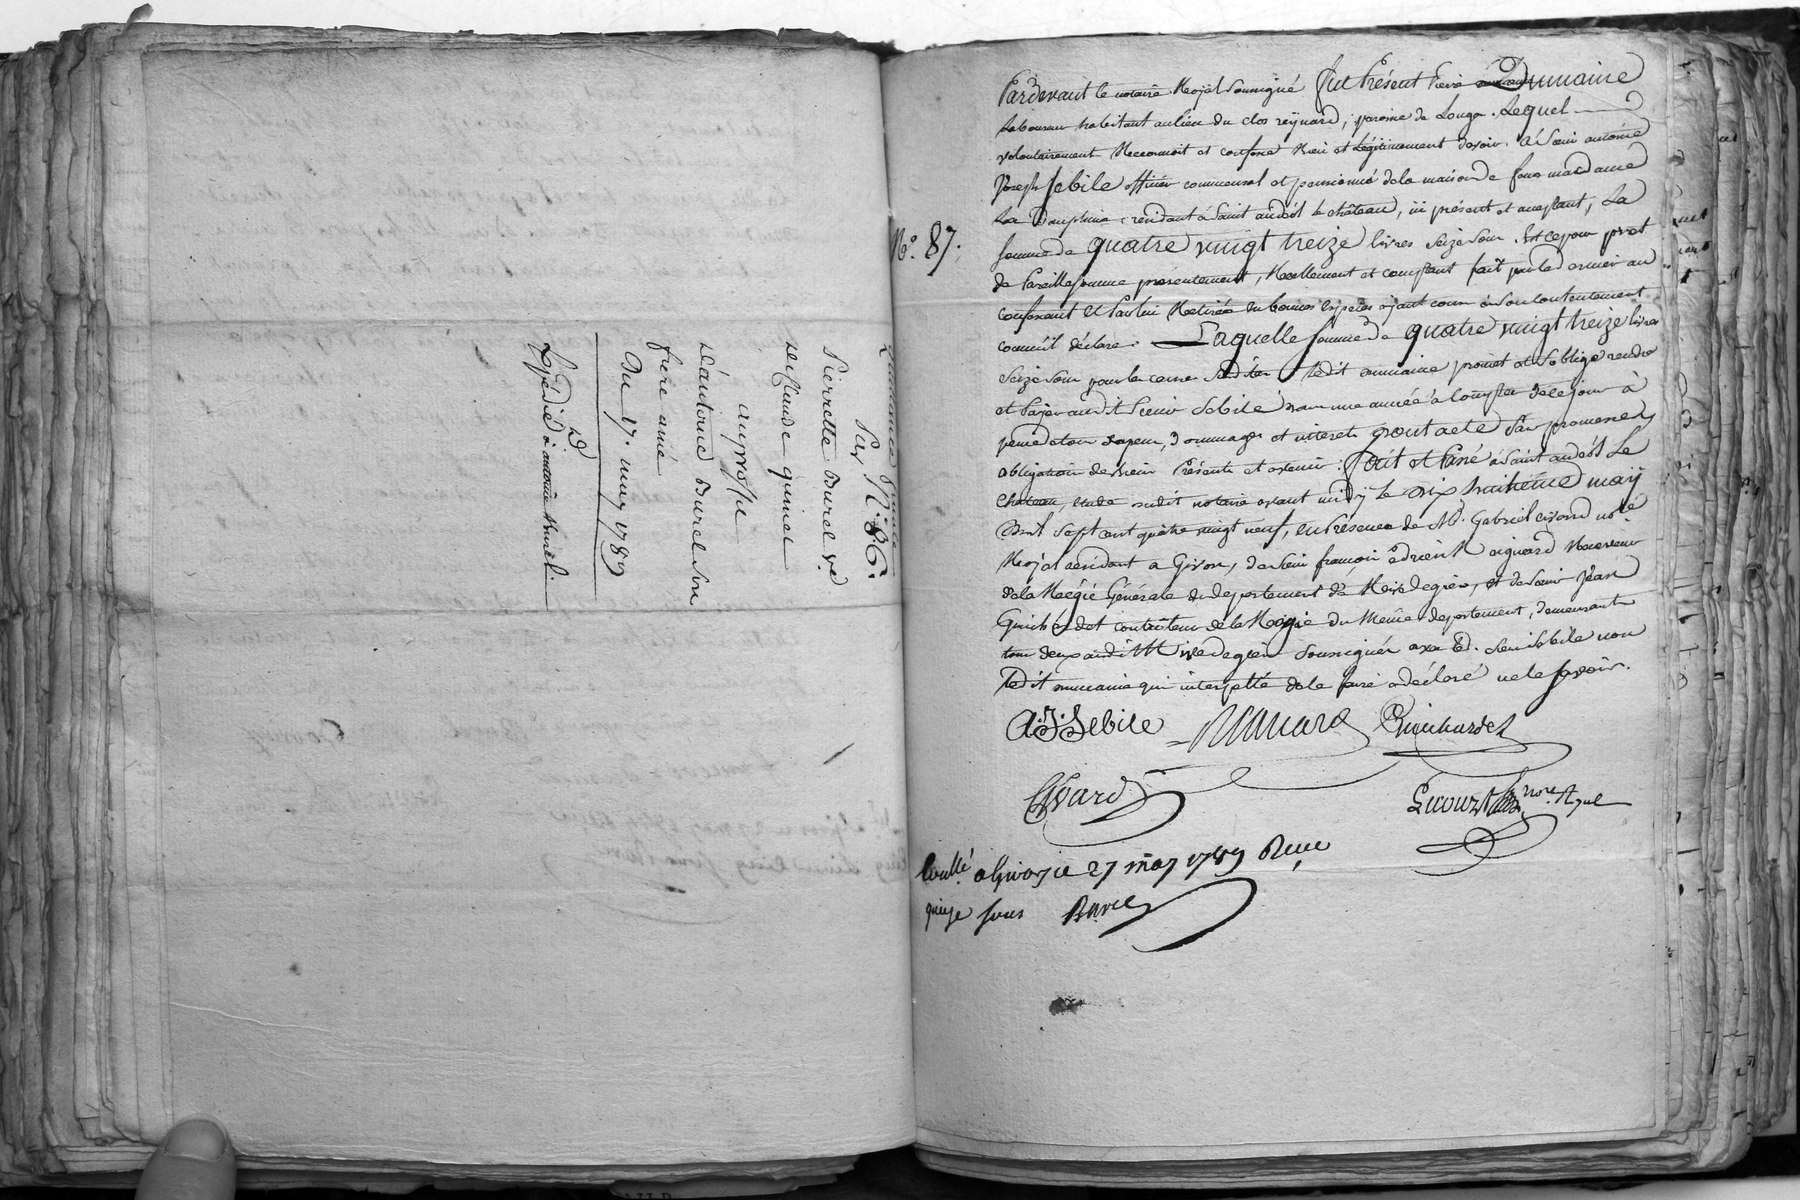 Quittance
Sur N.º 86.
Pierrette Burel v.e
de Claude quinet
au profit
d'antoine Burel son
frere ainé
Du 17. may 1789
Expédié à antoine Burel.
N.º 87.
Pardevant le notaire Royal soussigné fut Présent Pierre Dumaine
Laboureur habitant au lieu du clos reynard, paroisse de Longe. Lequel
volontairement Reconnoit et confesse bien et légitimement devoir à Sieur antoine
Joseph Sebile officier commensal et pensionné de la maison de feue madame
La Dauphine résidant à Saint andéol le château, ici présent et acceptant, La
somme de quatre vingt treize livres seize sous. Et ce pour pret
de Pareille somme présentement, Réellement et comptant fait par le dernier au
confessant et Par lui Retirée en bonnes espèces ayant cours à son contentement
comme il déclare. Laquelle somme de quatre vingt treize livres
seize sous pour les causes susdites ledit dumaine promet et s'oblige rendre
et Payer audit Sieur Sebile dans une année à compter de ce jour à
peine de tous dépens, dommages et interets dont acte Par promesses
obligation de biens Présents et avenir. Fait et Passé à Saint andéol Le
chateau, étude dudit notaire avant midy le dix huitième may
mil sept cent quatre vingt neuf, en Présence de M.e Gabriel
Royal résidant a Givors, de Sieur françois Receveur
de la Régie Générale au département de Rivedegier, et de Sieur Jean
Guichardet controleur de la Régie du Même département, demeurant
tous deux audit Rivedegier soussignés avec led. Sieur Sebile non
ledit dumaine qui interpellé de le faire a déclaré ne le savoir.
A. J. Sebile Guichardet
not.re Royal
Contllé a Givors ce 27 may 1789 Reçu
quinze sous